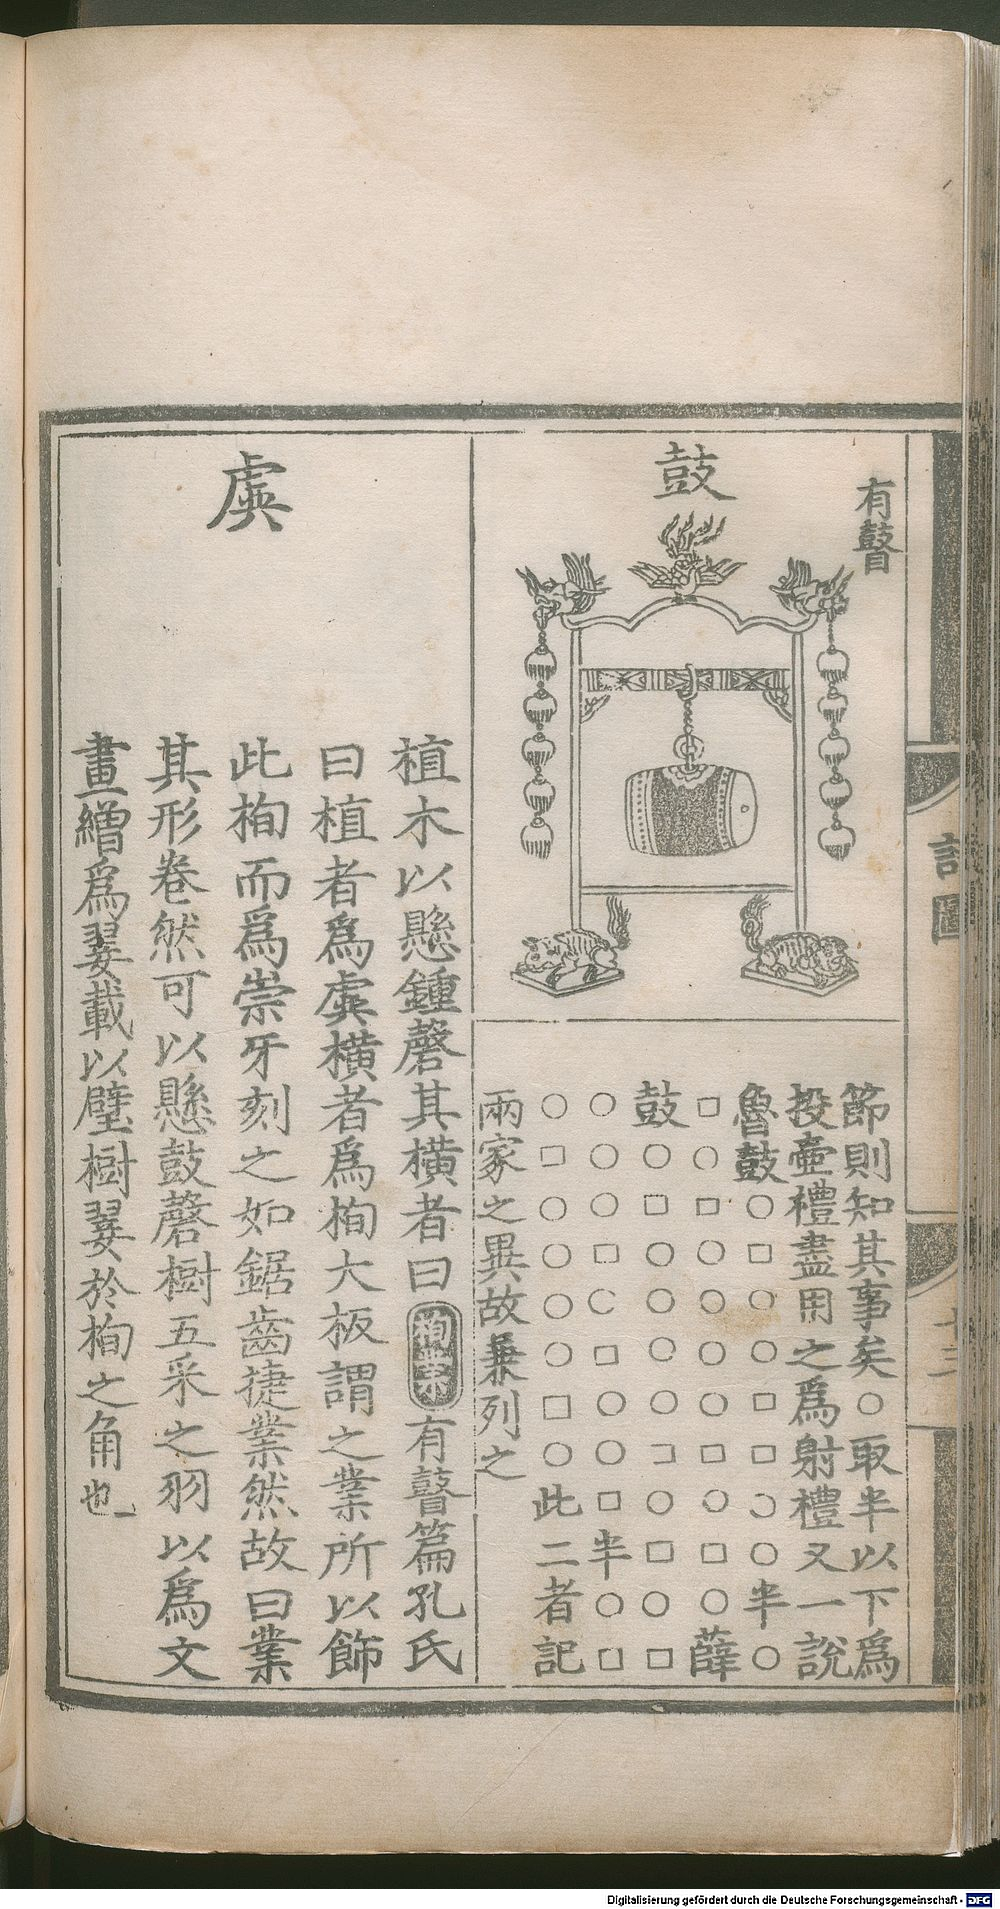 有瞽
鼓
節則知其事矣○取半以下爲
投壺禮盡用之爲射禮又一說
魯鼓○□○○□□○○半○
□○□○○○○□○□○薛
鼓○□○○○○□○□○□
○○○□○□○○□半○□
○□○○○○□○此二者記
兩家之異故兼列之
虡
植木以懸鍾磬其橫者曰有瞽篇孔氏
曰植者爲虡橫者爲栒大板謂之業所以飾
此栒而爲崇牙刻之如鋸齒捷業然故曰業
其形卷然可以懸鼓磬樹五采之羽以爲文
畫繒爲翣載以璧樹翣於栒之角也
Digitalisierung gefördert durch die Deutsche Forschungsgemeinschaft - DFG